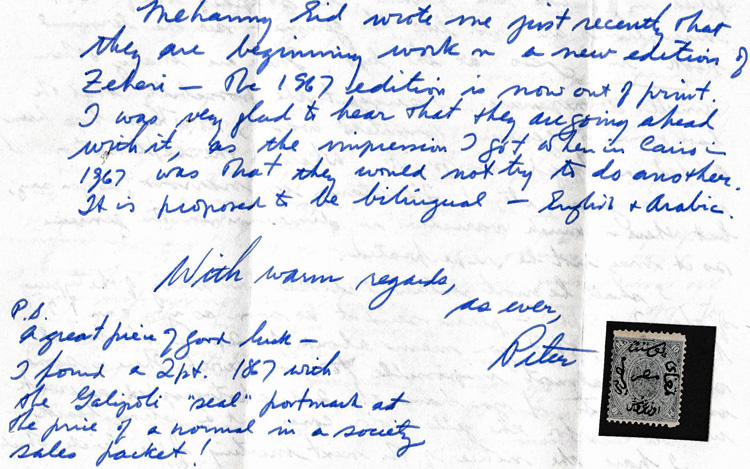 Mehanny Eid wrote me just recently that
they are beginning work on a new edition of
Zeheri — the 1967 edition is now out of print.
I was very glad to hear that they are going ahead
with it, as the impression I got when in Cairo in
1967 was that they would not try to do another.
It is proposed to be bilingual — English + Arabic.
With warm regards,
as ever,
Peter
P.S.
A great piece of good luck —
I found a 2pt. 1867 with
the Galipoli "seal" postmark at
the price of a normal in a society
sales packet!